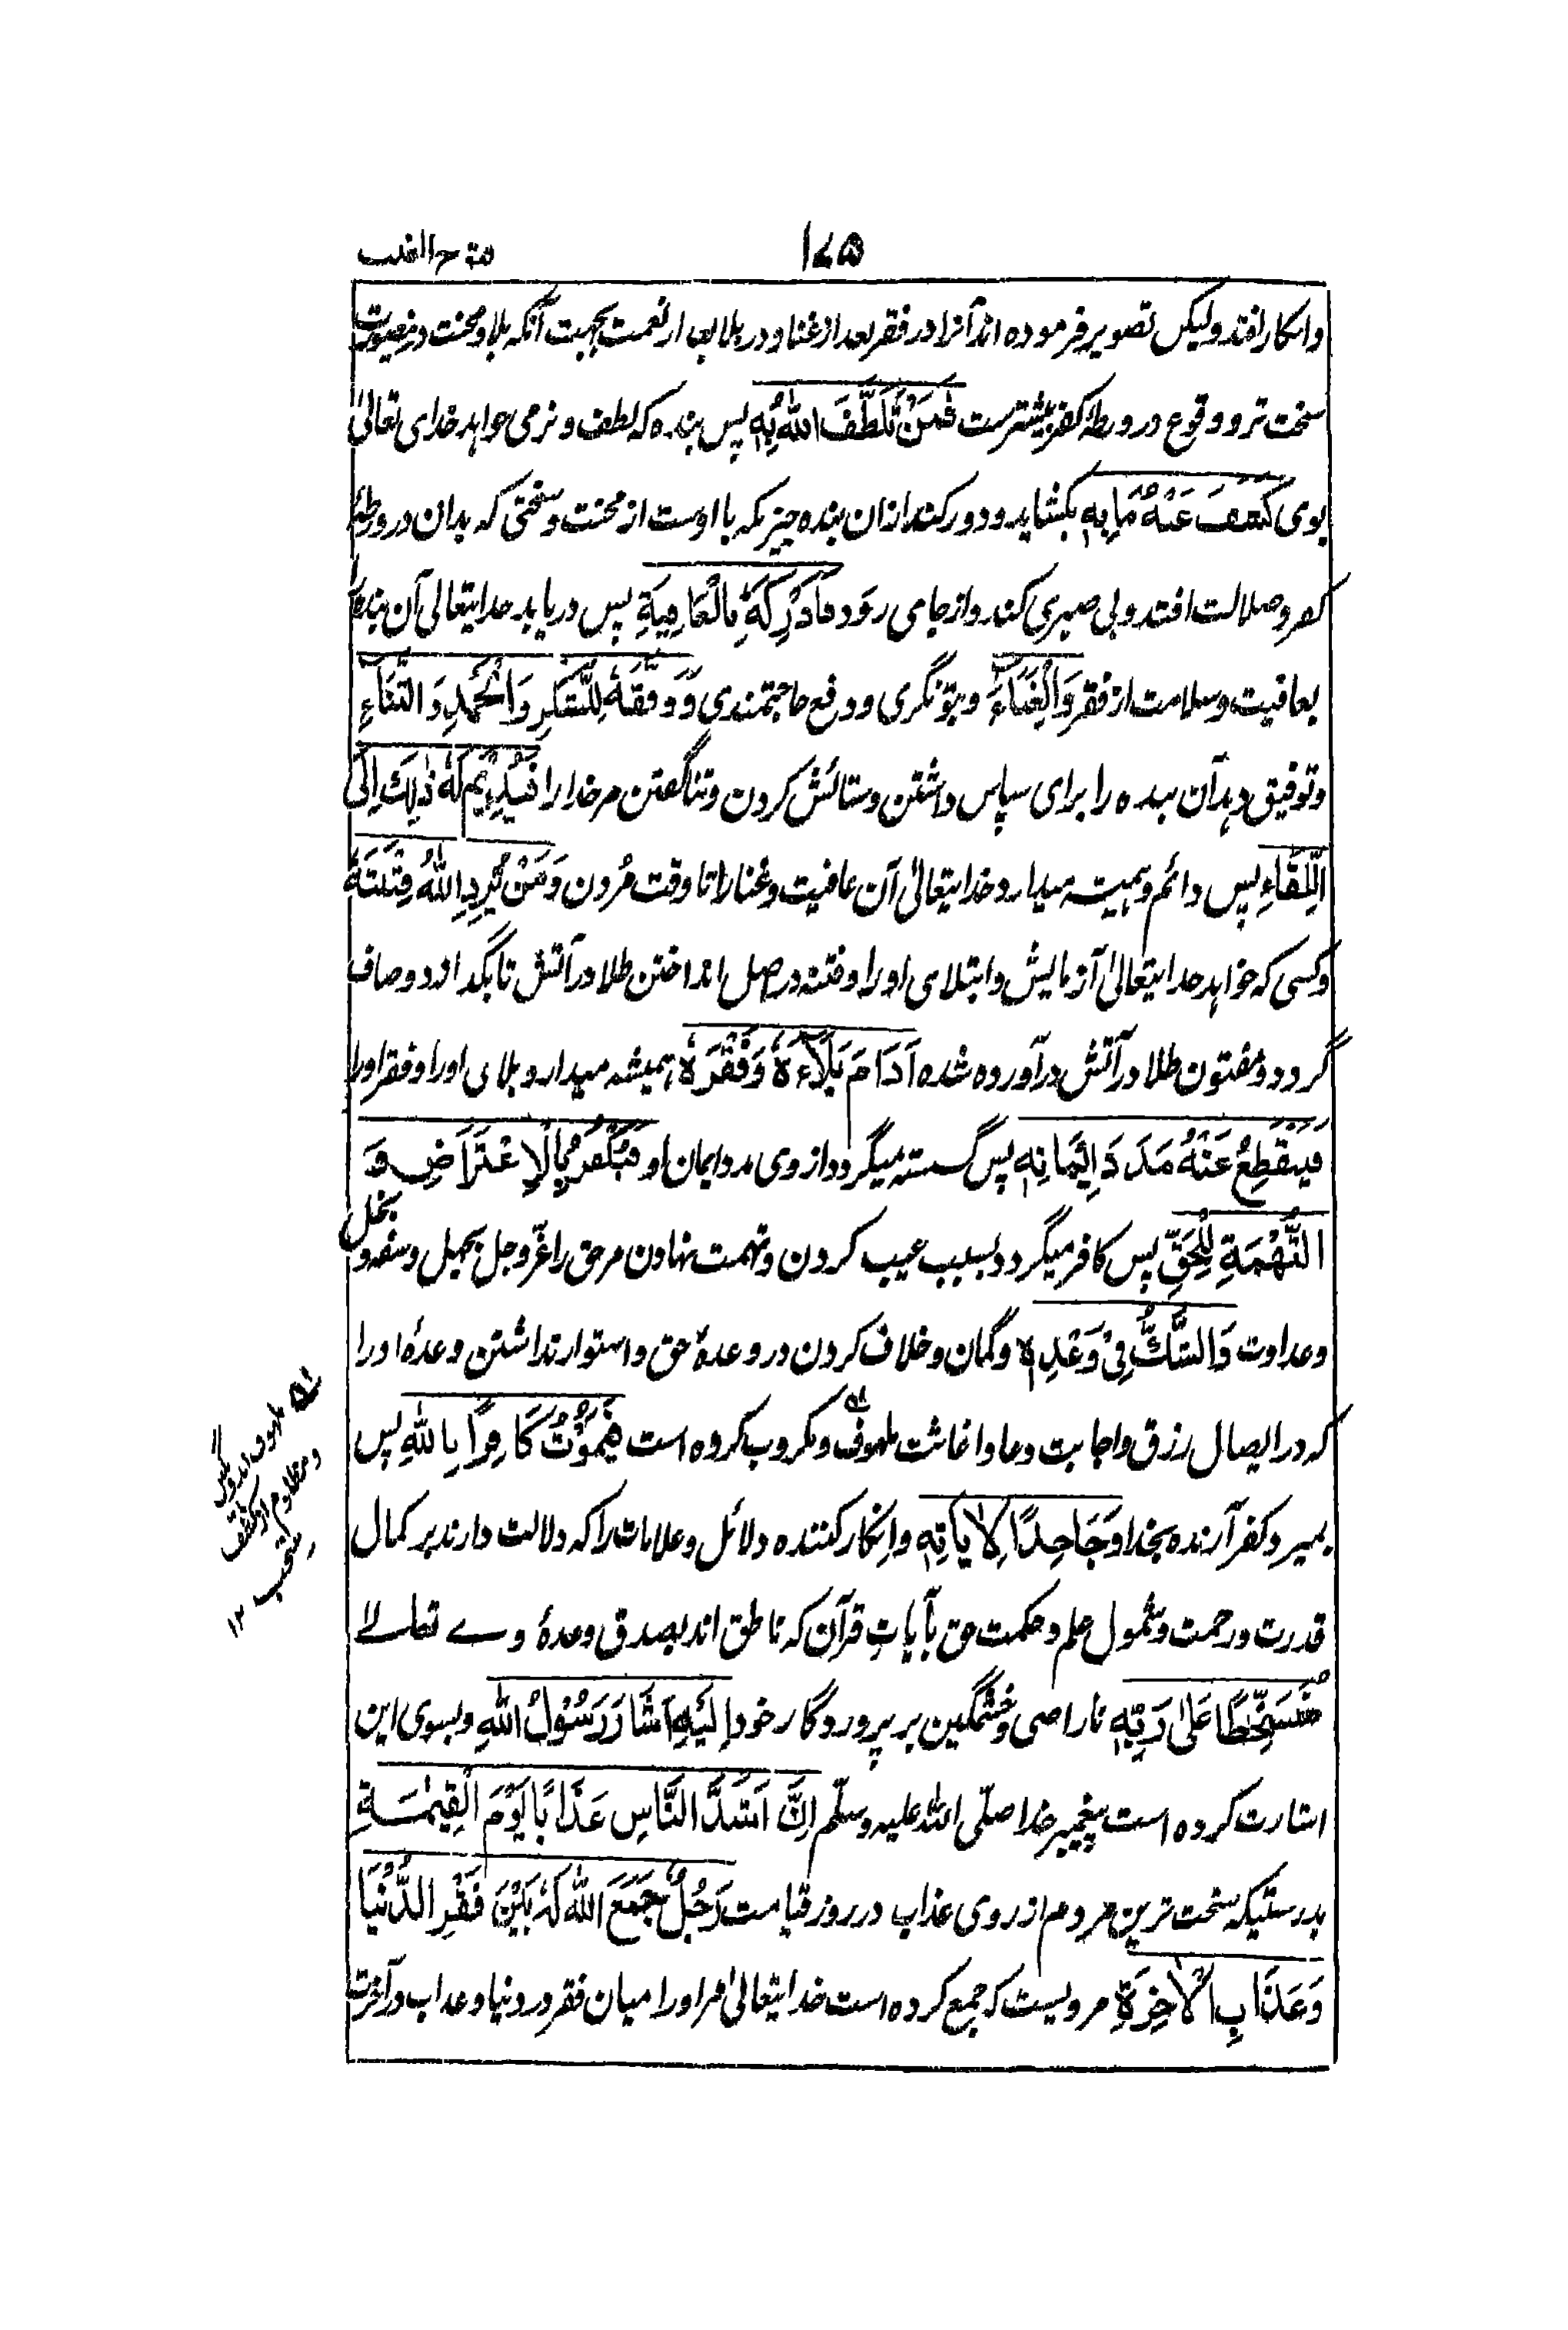 ١٧٥
وانکار افتد ولیکن تصویر فرموده اند آنرا در فقر بعد از غنا و در بلا بعد از نعمت بجهت آنکه بلا و محنت درینصورت
سخت تر و وقوع در ورطهٔ کفر بیشترست فَمَنْ تَلَطَّفَ اللّٰهُ بِهٖ پس بنده که لطف و نرمی خواهد خدای تعالیٰ
بوی كَشَفَ عَنْهُ مَا بِهٖ بکشاید و دور کند ازان بنده چیزیکه با اوست از محنت و سختی که بدان در ورطهٔ
کفر و ضلالت افتد و بی صبری کند و از جای رود فَاَدْرَكَهٗ بِالْعَافِيَةِ پس دریابد خدایتعالی آن بنده را
بعافیت و سلامت از فقر وَالْغِنَاءِ و بتونگری و دفع حاجتمندی وَوَفَّقَهٗ لِلشُّكْرِ وَالْحَمْدِ وَالثَّنَاءِ
و توفیق دهد آن بنده را برای سپاس داشتن و ستائش کردن و ثنا گفتن مر خدا را فَيُدِيْمُ لَهٗ ذٰلِكَ اِلَى
اللِّقَاءِ پس دائم و همیشه میدارد خدایتعالیٰ آن عافیت و غنا را تا وقت مُردن وَمَنْ يُّرِدِ اللّٰهُ فِتْنَتَهٗ
و کسی که خواهد خدایتعالیٰ آزمایش و ابتلای او را و فتنه در اصل انداختن طلا در آتش تا بگدازد و صاف
گردد و مفتون طلا در آتش در آورده شده اَدَامَ بَلَاءَهٗ وَفَقْرَهٗ همیشه میدارد بلای او را و فقر او را
فَيَنْقَطِعُ عَنْهُ مَدَدُ اِيْمَانِهٖ پس گسسته میگردد از وی مدد ایمان او فَيَكْفُرُ بِالْاِعْتِرَاضِ وَ
التُّهْمَةِ لِلْحَقِّ پس کافر میگردد بسبب عیب کردن و تهمت نهادن مر حق را عزّ وجل بجهل و سفه و بخل
و عداوت وَالشَّكِّ فِيْ وَعْدِهٖ و گمان و خلاف کردن در وعدهٔ حق و استوار نداشتن وعدهٔ او را
که در ایصال رزق و اجابت دعا و اغاثت ملهوف و مکروب کرده است فَيَمُوْتُ كَافِرًا بِاللّٰهِ پس
بمیرد کفر آرنده بخدا وَجَاحِدًا لِاٰيَاتِهٖ و انکار کننده دلائل و علامات را که دلالت دارند بر کمال
قدرت و رحمت و شمول علم و حکمت حق بآیات قرآن که ناطق اند بصدق وعدهٔ وے تعالےٰ
مُتَسَخِّطًا عَلٰى رَبِّهٖ ناراضی و خشمگین بر پروردگار خود اِلَيْهِ اَشَارَ رَسُوْلُ اللّٰهِ و بسوی این
اشارت کرده است پیغمبر خدا صلّی اللّٰه علیه وسلّم اِنَّ اَشَدَّ النَّاسِ عَذَابًا يَوْمَ الْقِيٰمَةِ
بدرستیکه سخت ترین مردم از روی عذاب در روز قیامت رَجُلٌ جَمَعَ اللّٰهُ لَهٗ بَيْنَ فَقْرِ الدُّنْيَا
وَعَذَابِ الْاٰخِرَةِ مردیست که جمع کرده است خدایتعالیٰ مر او را میان فقر در دنیا و عذاب در آخرت
ملهوف اندوهگین
و مظلوم از کشف
منتخب ١٢